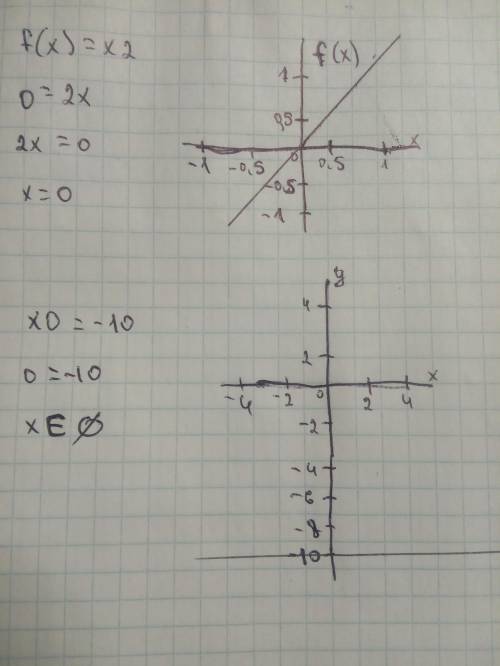 f(x) = x2
0 = 2x
2x = 0
x = 0
f(x)
1
0,5
-1 -0,5 0 0,5 1 x
-0,5
-1
x0 = -10
0 = -10
x ∈ ∅
y
4
2
-4 -2 0 2 4 x
-2
-4
-6
-8
-10